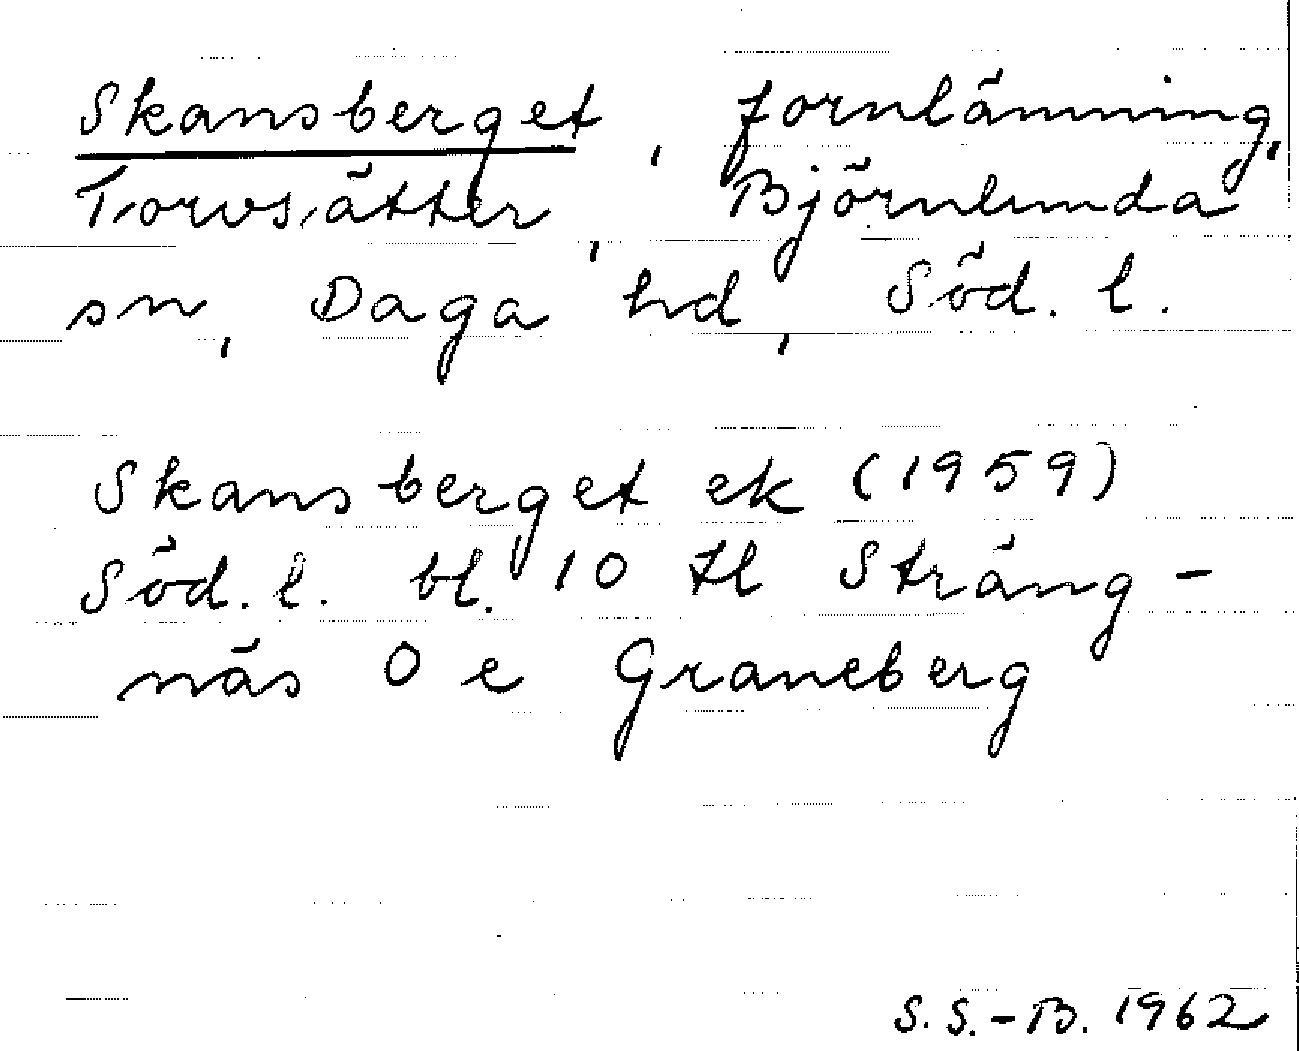 Skansberget, fornlämning,
Torvsätter, Björnlunda
sn, Daga hd, Söd. l.
Skansberget ek (1959)
Söd. l. bl. 10 tl Sträng-
näs O e Graneberg
S. S.-B. 1962